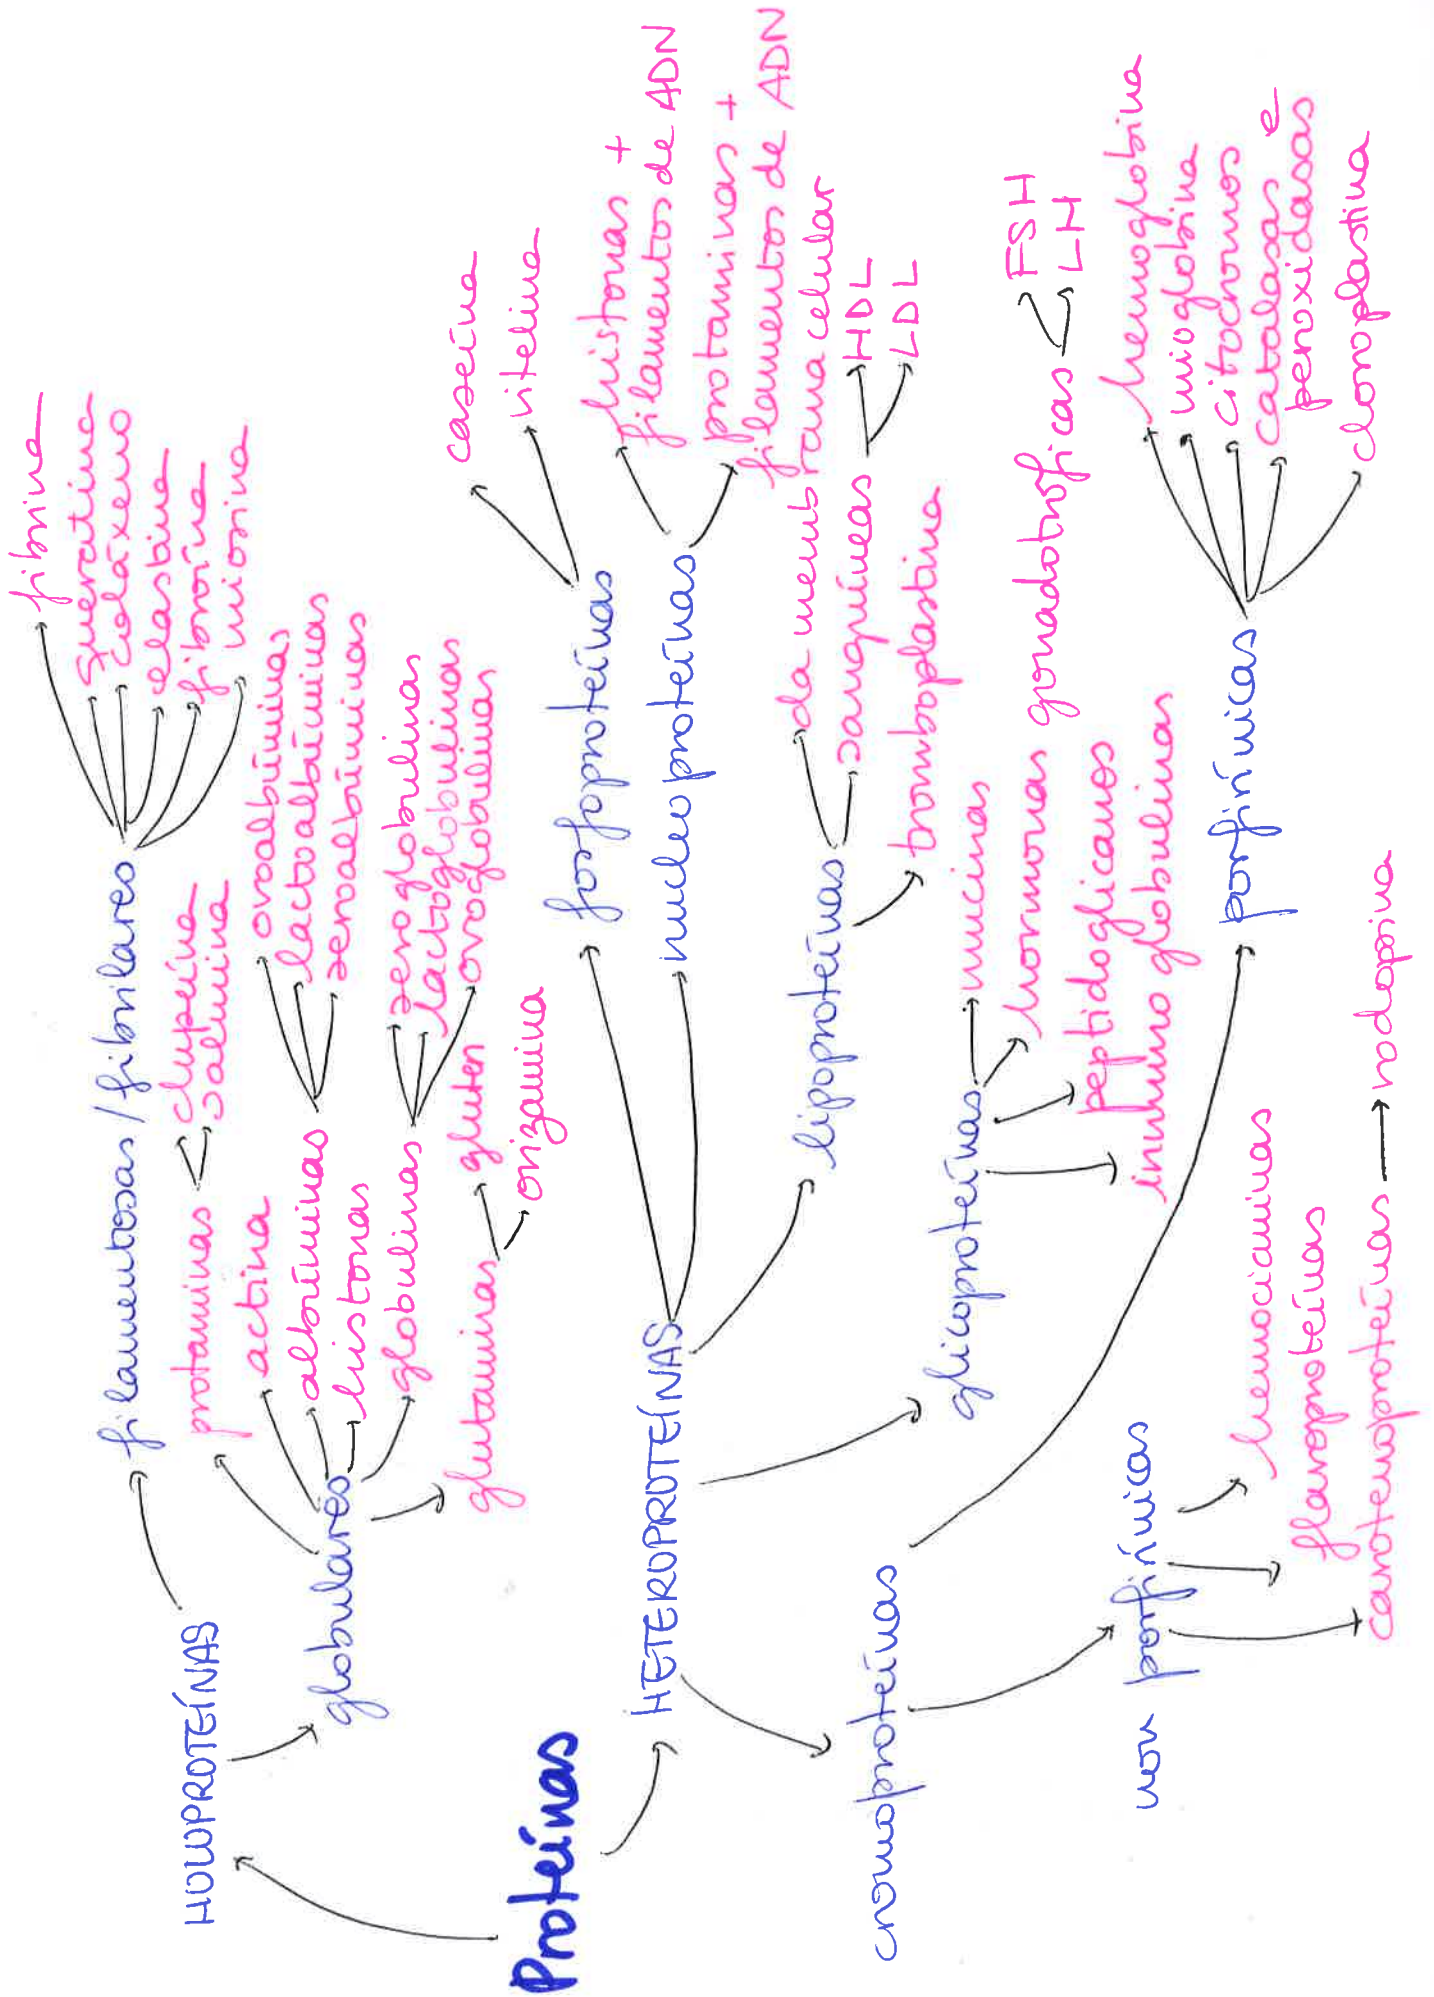 Proteínas
HOLOPROTEÍNAS
filamentosas / fibrilares
fibrina
queratina
coláxeno
elastina
fibroína
miosina
globulares
protaminas
clupeína
salmina
actina
albúminas
ovoalbúminas
lactoalbúminas
seroalbúminas
histonas
globulinas
seroglobulinas
lactoglobulinas
ovoglobulinas
glutaminas
gluten
orizamina
HETEROPROTEÍNAS
fosfoproteínas
caseína
vitelina
nucleoproteínas
histonas +
filamentos de ADN
protaminas +
filamentos de ADN
lipoproteínas
da membrana celular
sanguíneas
HDL
LDL
tromboplastina
glicoproteínas
mucinas
hormonas gonadotróficas
FSH
LH
peptidoglicanos
inmunoglobulinas
cromoproteínas
porfirínicas
hemoglobina
mioglobina
citocromos
catalasas e
peroxidasas
cloroplastina
non porfirínicas
hemocianinas
flavoproteínas
carotenoproteínas
rodopsina